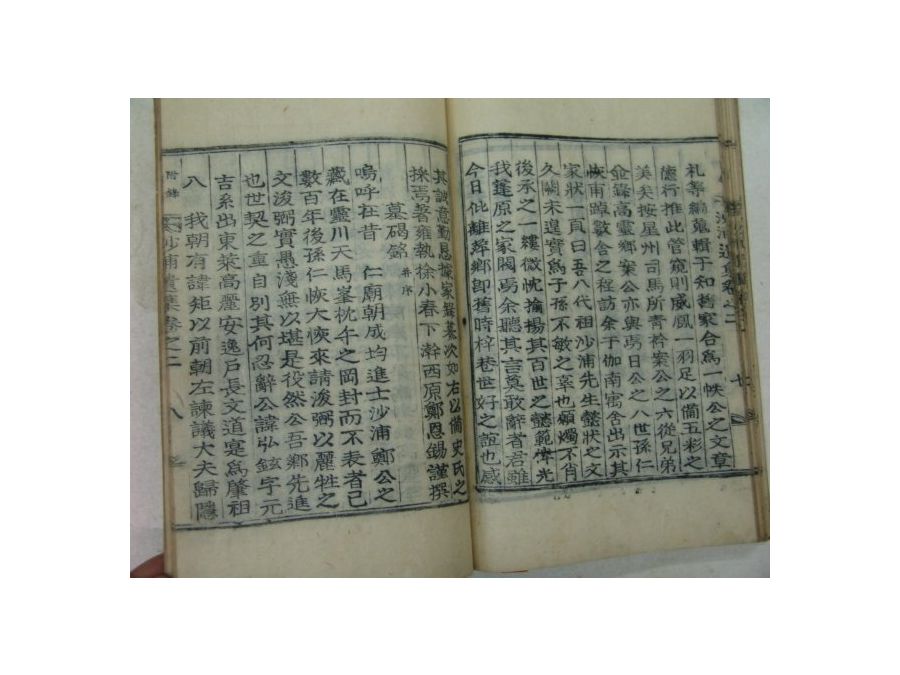 札筆編蒐輯于知舊家合爲一帙公之文章
德行推此管窺則威鳳一羽足以備五彩之
美矣按星州司馬所青衿案公之六從兄弟
僉錄高靈鄕案公亦與焉日公之八世孫仁
恢甫踔數舍之程訪余于伽南寓舍出示其
家狀一頁曰吾八代祖沙浦先生懿狀之文
久闕未遑實爲子孫不敏之辜也願燭不肖
後承之一縷微忱揄揚其百世之懿範燦光
我蓬原之家閥焉余聽其言莫敢辭者君雖
今日仳離葬鄕卽舊時梓巷世好之誼也感
其誠意勤懇據家錄纂次如右以備史氏之
採焉著雍執徐小春下澣西原鄭恩錫謹撰
墓碣銘 幷序
嗚呼在昔 仁廟朝成均進士沙浦鄭公之
藏在靈川天馬峯枕午之岡封而不表者已
數百年後孫仁恢大恢來請浚弼以麗牲之
文浚弼實愚淺無以堪是役然公吾鄕先進
也世契之重自別其何忍辭公諱弘鉉字元
吉系出東萊高麗安逸戶長文道寔爲肇祖
八 我朝有諱矩以前朝左諫議大夫歸隱
附錄 沙浦遺集卷之二 八